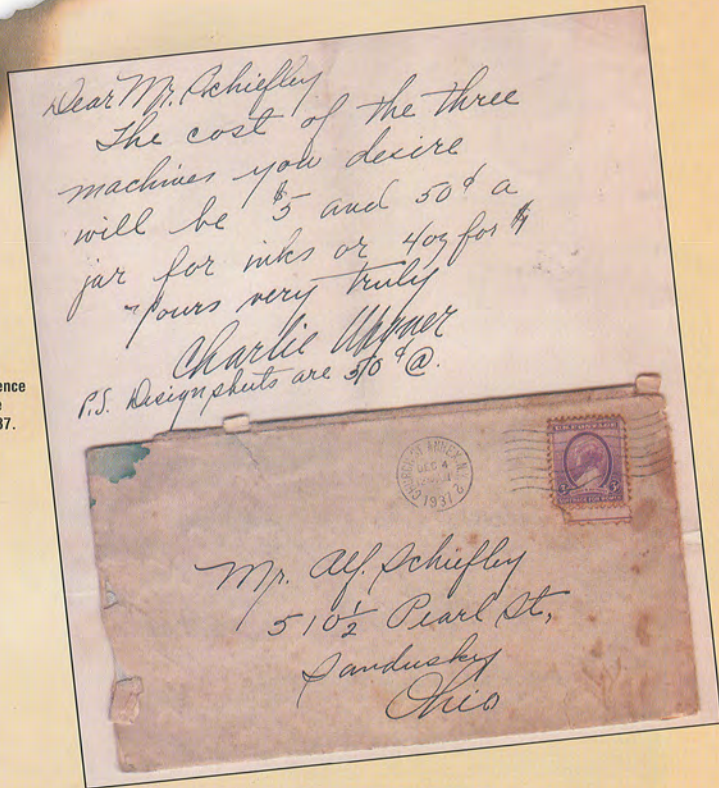 Dear Mr. Schiefley
The cost of the three
machines you desire
will be $5 and 50¢ a
jar for inks or 4oz for $1
Yours very truly
Charlie Wagner
P.S. Design sheets are 50¢ @.
ence
37.
U.S. POSTAGE
3¢ 3¢
CHURCH ST. ANNEX, N.Y.
DEC 4
1937
2
Mr. Alf. Schiefley
510½ Pearl St,
Sandusky
Ohio